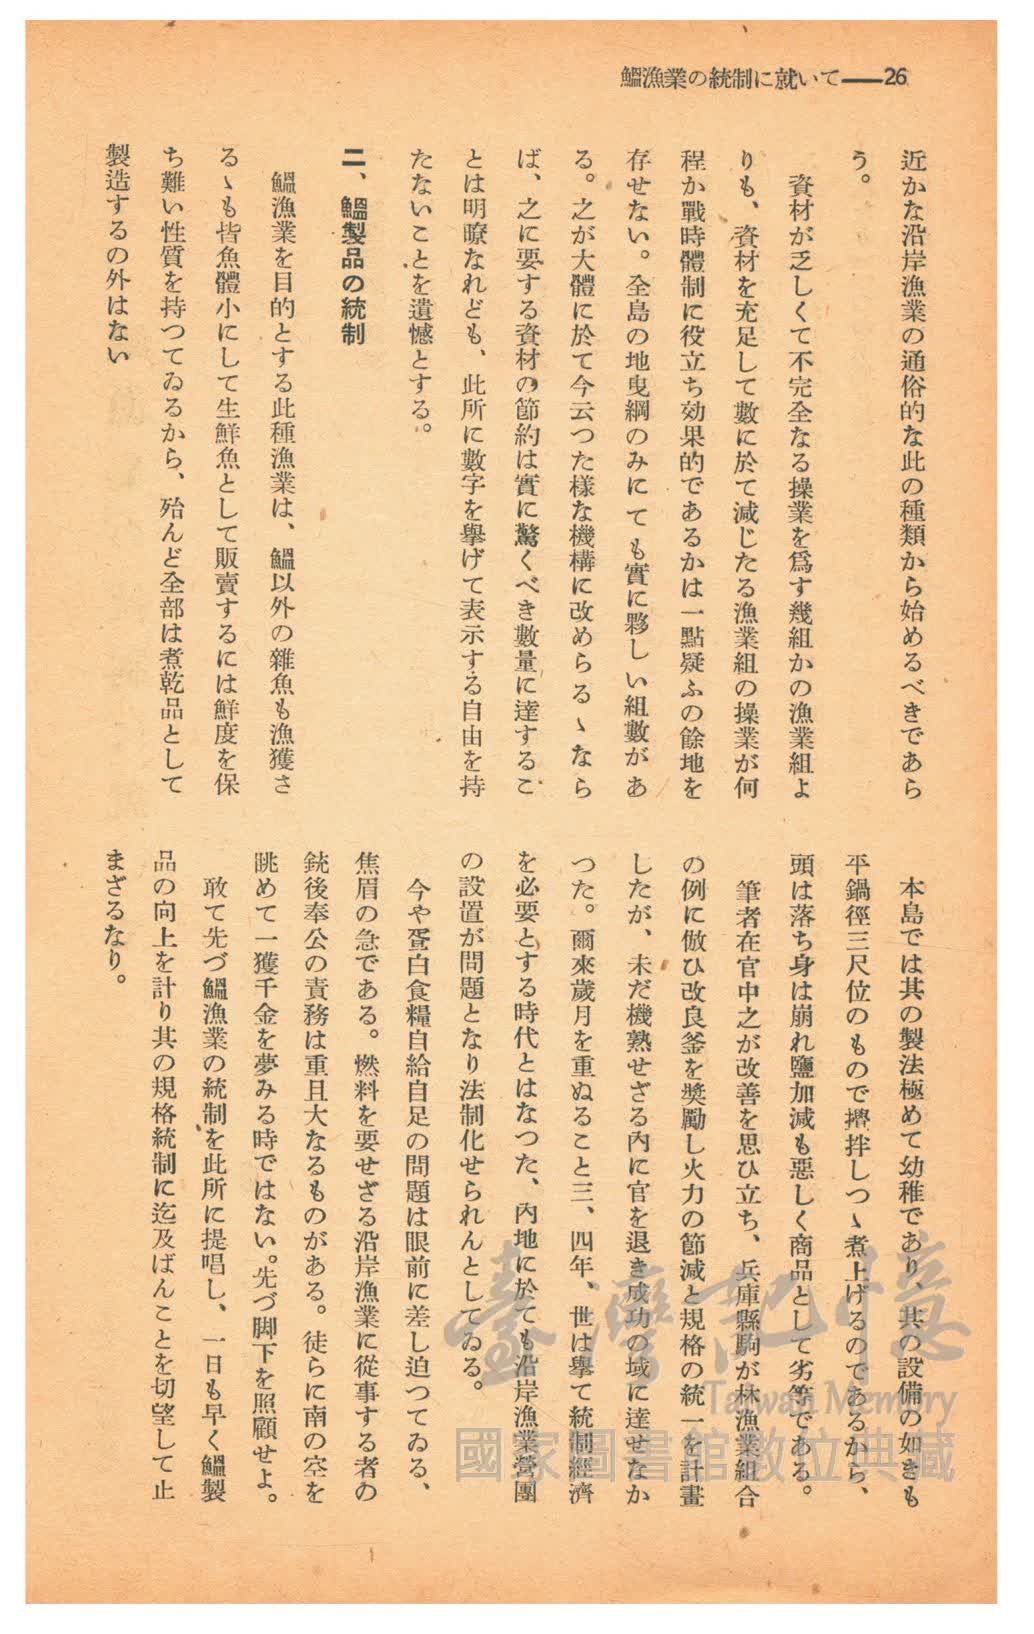 鰮漁業の統制に就いて――26
近かな沿岸漁業の通俗的な此の種類から始めるべきであら
う。
資材が乏しくて不完全なる操業を爲す幾組かの漁業組よ
りも、資材を充足して數に於て減じたる漁業組の操業が何
程か戰時體制に役立ち効果的であるかは一點疑ふの餘地を
存せない。全島の地曳綱のみにても實に夥しい組數があ
る。之が大體に於て今云つた樣な機構に改めらるゝなら
ば、之に要する資材の節約は實に驚くべき數量に達するこ
とは明瞭なれども、此所に數字を擧げて表示する自由を持
たないことを遺憾とする。
二、鰮製品の統制
鰮漁業を目的とする此種漁業は、鰮以外の雜魚も漁獲さ
るゝも皆魚體小にして生鮮魚として販賣するには鮮度を保
ち難い性質を持つてゐるから、殆んど全部は煮乾品として
製造するの外はない
本島では其の製法極めて幼稚であり、其の設備の如きも
平鍋徑三尺位のもので攪拌しつゝ煮上げるのであるから、
頭は落ち身は崩れ鹽加減も惡しく商品として劣等である。
筆者在官中之が改善を思ひ立ち、兵庫縣駒が林漁業組合
の例に倣ひ改良釜を奬勵し火力の節減と規格の統一を計畫
したが、未だ機熟せざる內に官を退き成功の域に達せなか
つた。爾來歲月を重ぬること三、四年、世は擧て統制經濟
を必要とする時代とはなつた、內地に於ても沿岸漁業營團
の設置が問題となり法制化せられんとしてゐる。
今や蛋白食糧自給自足の問題は眼前に差し迫つてゐる、
焦眉の急である。燃料を要せざる沿岸漁業に從事する者の
銃後奉公の責務は重且大なるものがある。徒らに南の空を
眺めて一獲千金を夢みる時ではない。先づ脚下を照顧せよ。
敢て先づ鰮漁業の統制を此所に提唱し、一日も早く鰮製
品の向上を計り其の規格統制に迄及ばんことを切望して止
まざるなり。
臺灣記憶
Taiwan Memory
國家圖書館數位典藏